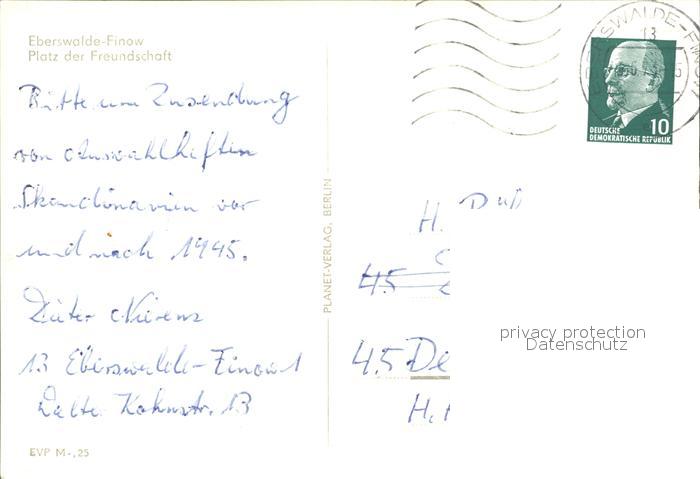 Eberswalde-Finow
Platz der Freundschaft
Bitte um Zusendung
von Auswahlheften
Skandinavien vor
und nach 1945.
Dieter
13 Eberswalde-Finow 1
Walter Kohnstr. 13
EVP M-,25
PLANET-VERLAG, BERLIN
EBERSWALDE-FINOW
13
DEUTSCHE
DEMOKRATISCHE REPUBLIK
10
H. Duß
45
privacy protection
Datenschutz
45 De
H.